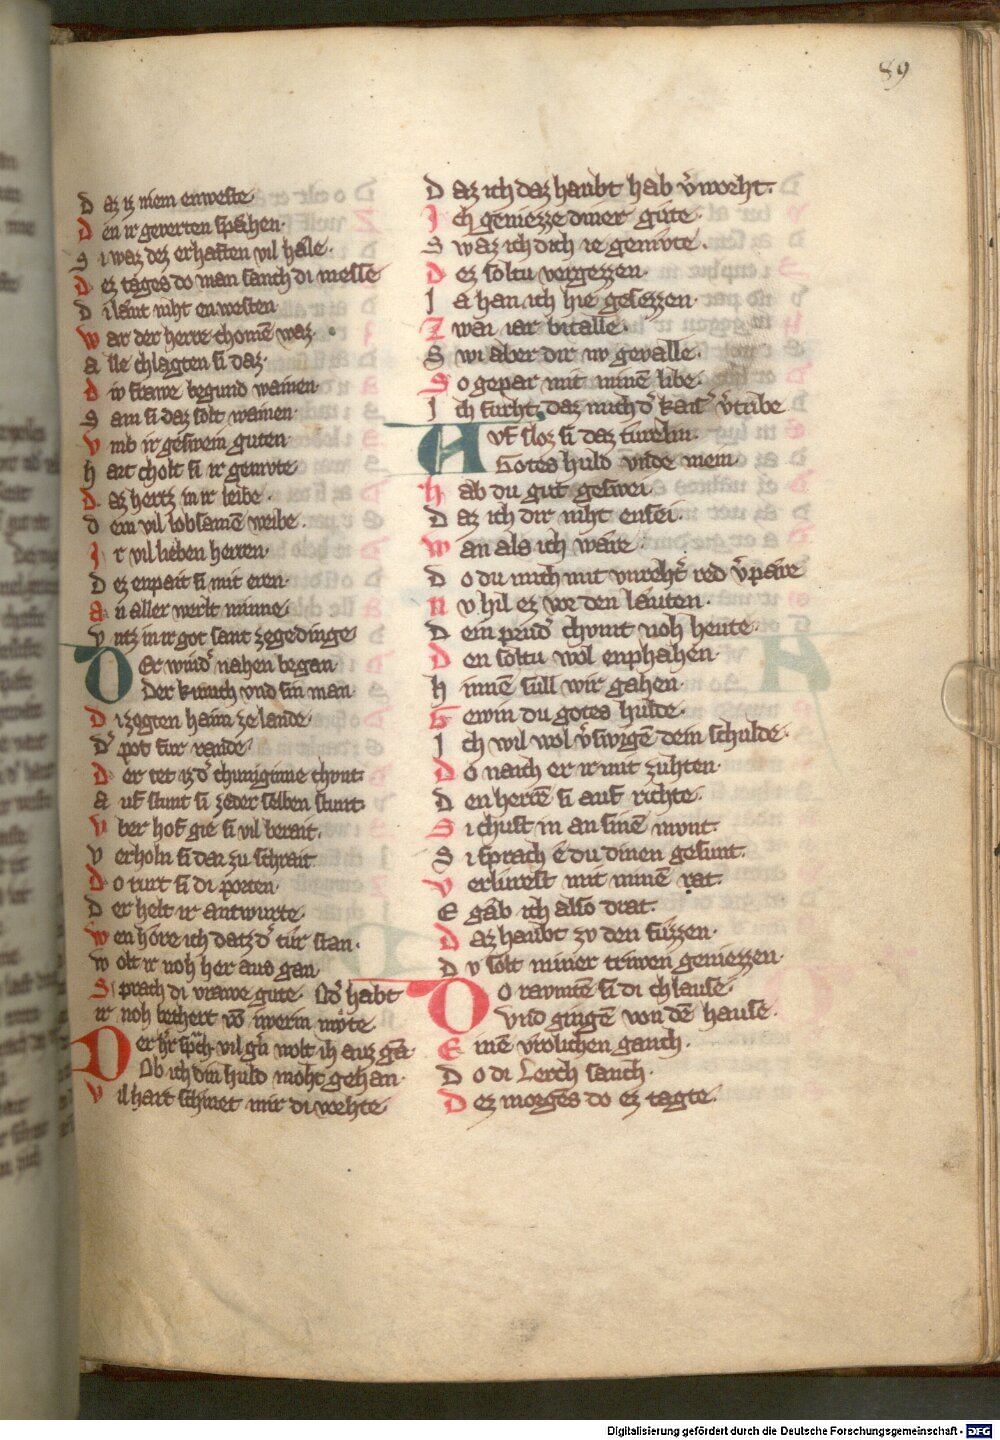 89
D az iz niem enweste·
D en ir geverten spåhen·
S i waz dez erhaften vil håle·
D ez tages do man sanch di messe
D i laüt niht en westen
W ar der herre chomē waz·
A lle chlagten si daz·
D iv frawe begund wainen
S am si daz solt wainen·
V mb ir geswein guten·
H art cholt si ir gemvte·
D az hertz in ir leibe·
D em vil lobsamē weibe·
I r vil lieben herren·
D ez enpait si mit eren·
A n aller werlt minne·
V ntz in ir got sant ze gedinge
D Er wind' nahen began
Der kunich vnd sin man·
D i zogten haim ze lande·
D' pot fur rande·
D er tet iz d' chuniginne chvnt·
A uf stunt si ze der selben stunt·
V ber hof gie si vil berait·
V erholn si dar zu schrait
D o rurt si di porten·
D er helt ir antwurte·
W en hőre ich datz d' tür stan·
W olt ir noh her aus gan
S prach di vrawe gute· Od' habt
ir noh bechert vō iwerm mvte·
D er h'r sp'ch· vil g'n wolt ih auz gā
Ob ich din huld moht gehan·
V il hart schinet mir di vorhte·
D az ich daz haubt hab v'worht·
I ch geniezze diner güte·
S waz ich dich ie gemvte·
D ez soltu vergezzen·
I a han ich hie gesezzen·
Z wai iar bitalle·
S wi aber dir nv gevalle·
S o gepar mit minē libe·
I ch furht daz mich d' kais' v'tribe
A vf sloz si daz türelin·
Gotes huld vnde mein·
H ab du gut geswei·
D az ich dir niht ensei·
W an als ich wåre·
D o du mich mit vnreht' red v'påire
N v hil ez vor den laüten·
D ein prüd' chvmt noh heute·
D en soltu wol enphahen·
H innē süll wir gahen·
G ewin du gotes hülde·
I ch wil wol v'swigē dein schulde·
D o naich er ir mit zuhten·
D en herrē si auf richte·
S i chust in an sinē mvnt·
S i sprach e du dinen gesunt·
V erlürest mit minē rat·
E gåb ich also drat·
D az haubt zv den füzzen·
D v solt miner triwen geniezzen·
D o ravmtē si di chlause·
Vnd gingē von dē hause·
E inē vrolichen ganch·
D o di Lerch sanch·
D ez morgēs do ez tagte·
Digitalisierung gefördert durch die Deutsche Forschungsgemeinschaft - DFG